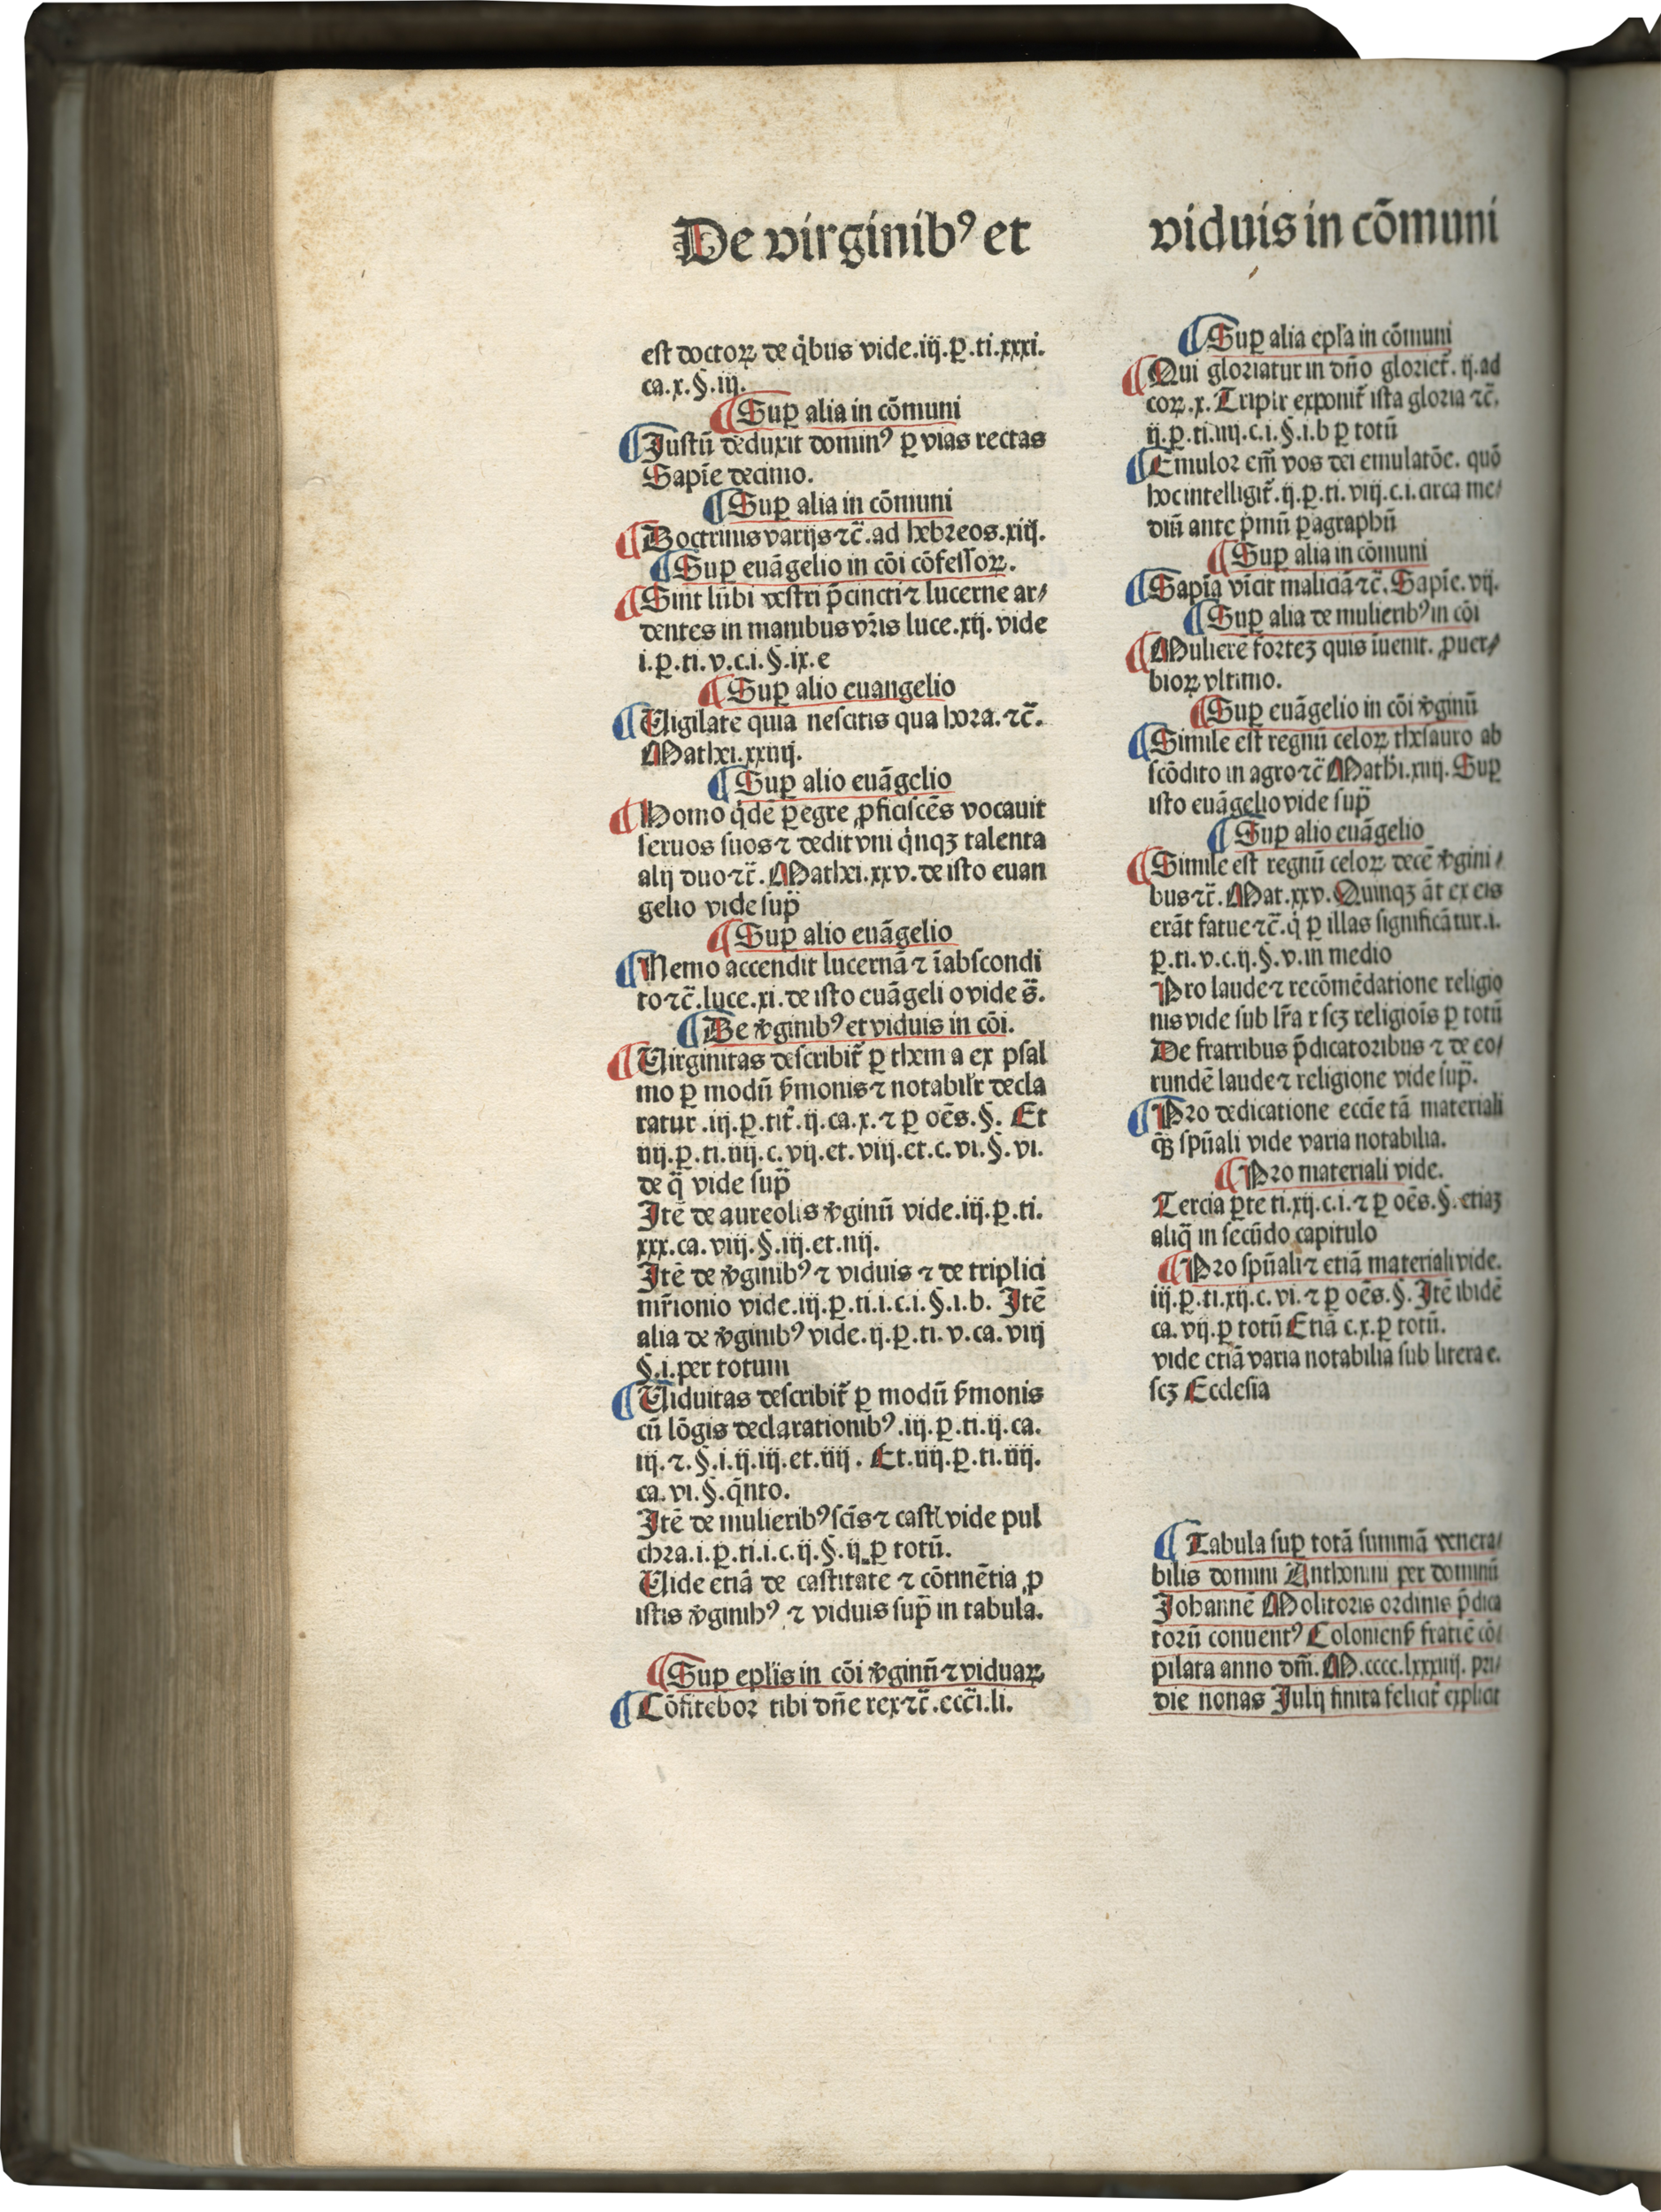 De virginibꝰ et viduis in cōmuni
est doctoꝝ de q̇bus vide.iij.ꝑ.ti.xxxi.
ca.x.§.iij.
¶Suꝑ alia in cōmuni
¶Justū deduxit dominꝰ ꝑ vias rectas
Sapīe decimo.
¶Suꝑ alia in cōmuni
¶Doctrinis varijs ⁊c̄.ad hebreos.xiij.
¶Suꝑ euāgelio in cōi cōfessoꝝ.
¶Sint lūbi vestri p̄cincti ⁊ lucerne ar/
dentes in manibus vr̄is luce.xij. vide
i.ꝑ.ti.v.c.i.§.ix.e
¶Suꝑ alio euangelio
¶Uigilate quia nescitis qua hora.⁊c̄.
Mathei.xxiiij.
¶Suꝑ alio euāgelio
¶Homo q̇dē ꝑegre ꝓficiscēs vocauit
seruos suos ⁊ dedit vni q̇nqꝫ talenta
alij duo ⁊c̄. Mathei.xxv.de isto euan
gelio vide sup̄
¶Suꝑ alio euāgelio
¶Nemo accendit lucernā ⁊ ī abscondi
to ⁊c̄.luce.xi.de isto euāgeli o vide s̄.
¶De v̄ginibꝰ et viduis in cōi.
¶Uirginitas describit̄ ꝑ them a ex psal
mo ꝑ modū s̄monis ⁊ notabilr̄ decla
ratur.iij.ꝑ.tit̄.ij.ca.x.⁊ ꝑ oēs.§. Et
iiij.ꝑ.ti.iiij.c.vij.et.viij.et.c.vi.§.vi.
de q̄ vide sup̄
Itē de aureolis v̄ginū vide.iij.ꝑ.ti.
xxx.ca.viij.§.iij.et.iiij.
Itē de v̄ginibꝰ ⁊ viduis ⁊ de triplici
mr̄ionio vide.iij.ꝑ.ti.i.c.i.§.i.b. Itē
alia de v̄ginibꝰ vide.ij.ꝑ.ti.v.ca.viij
§.i.per totum
¶Uiduitas describit̄ ꝑ modū s̄monis
cū lōgis declarationibꝰ.iij.ꝑ.ti.ij.ca.
iij.⁊.§.i.ij.iij.et.iiij. Et.iiij.ꝑ.ti.iiij.
ca.vi.§.q̇nto.
Itē de mulieribꝰ scīs ⁊ castꝭ vide pul
chra.i.ꝑ.ti.i.c.ij.§.ij.ꝑ totū.
Uide etiā de castitate ⁊ cōtinētia ꝓ
istis v̄ginibꝰ ⁊ viduis sup̄ in tabula.
¶Suꝑ epl̄is in cōi v̄ginū ⁊ viduaꝝ
¶Cōfitebor tibi dn̄e rex ⁊c̄.ecc̄i.li.
¶Suꝑ alia epl̄a in cōmuni
¶Qui gloriatur in dn̄o gloriet̄. ij.ad
coꝝ.x. Triplr̄ exponit̄ ista gloria ⁊c̄.
ij.ꝑ.ti.iiij.c.i.§.i.b ꝑ totū
¶Emulor em̄ vos dei emulatōe. quō
hoc intelligit̄.ij.ꝑ.ti.viij.c.i.circa me/
diū ante ṗmū ꝑagraphū
¶Suꝑ alia in cōmuni
¶Sapīa vīcit maliciā ⁊c̄. Sapīe.vij.
¶Suꝑ alia de mulieribꝰ in cōi
¶Mulierē forteꝫ quis īuenit. ꝓuer/
bioꝝ vltimo.
¶Suꝑ euāgelio in cōi v̄ginū
¶Simile est regnū celoꝝ thesauro ab
scōdito in agro ⁊c̄ Mathi.xiiij. Suꝑ
isto euāgelio vide sup̄
¶Suꝑ alio euāgelio
¶Simile est regnū celoꝝ decē v̄gini/
bus ⁊c̄. Mat.xxv. Quinqꝫ āt ex eis
erāt fatue ⁊c̄.q̇ ꝑ illas significātur.i.
ꝑ.ti.v.c.ij.§.v.in medio
Pro laude ⁊ recōmēdatione religio
nis vide sub lr̄a r scꝫ religiōis ꝑ totū
De fratribus p̄dicatoribus ⁊ de eo/
rundē laude ⁊ religione vide sup̄.
¶Pro dedicatione ecc̄ie tā materiali
q̄ꝫ spūali vide varia notabilia.
¶Pro materiali vide.
Tercia ꝑte ti.xij.c.i.⁊ ꝑ oēs.§.etiaꝫ
aliq̄ in secūdo capitulo
¶Pro spūali ⁊ etiā materiali vide.
iij.ꝑ.ti.xij.c.vi.⁊ ꝑ oēs.§. Itē ibidē
ca.vij.ꝑ totū Etiā c.x.ꝑ totū.
vide etiā varia notabilia sub litera e.
scꝫ Ecclesia
¶Tabula suꝑ totā summā venera/
bilis domini Anthonini per dominū
Johannē Molitoris ordinis p̄dica
torū conuentꝰ Coloniens̄ fratrē cō/
pilata anno dn̄i. M.cccc.lxxxiiij. pri/
die nonas Julij finita felicit̄ explicit